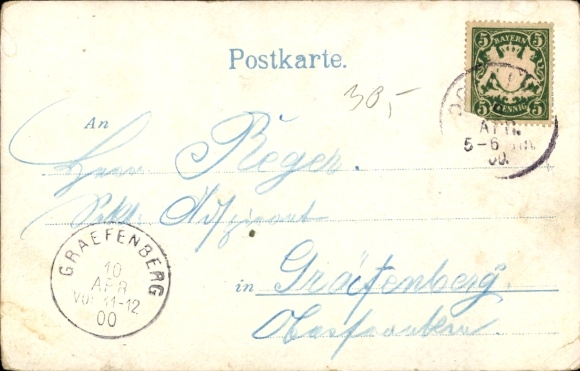 Postkarte.
BAYERN
5 5
5 PFENNIG 5
30,-
APR.
5-6
00.
An
Herrn Reger.
Adspirant
in Gräfenberg.
Oberfranken.
GRAEFENBERG
10
APR
VOR 11-12
00